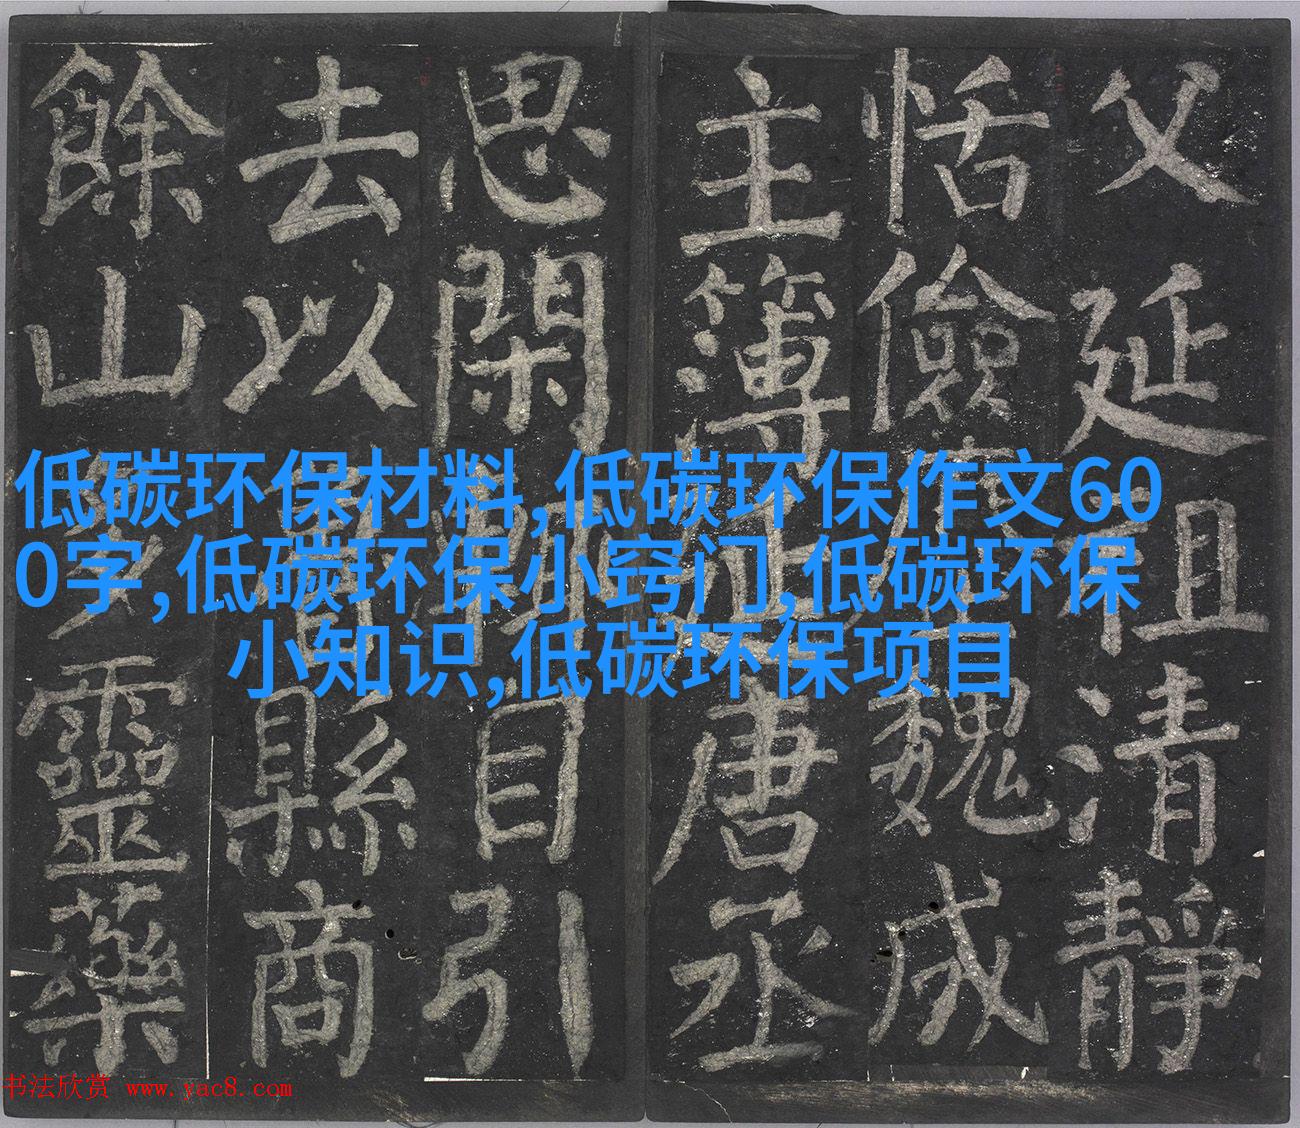 父延祖清靜
恬儉魏成
主簿唐丞
思閑目引
去以縣商
餘山靈藥
低碳环保材料,低碳环保作文60
0字,低碳环保小窍门,低碳环保
小知识,低碳环保项目
书法欣赏 www.yac8.com